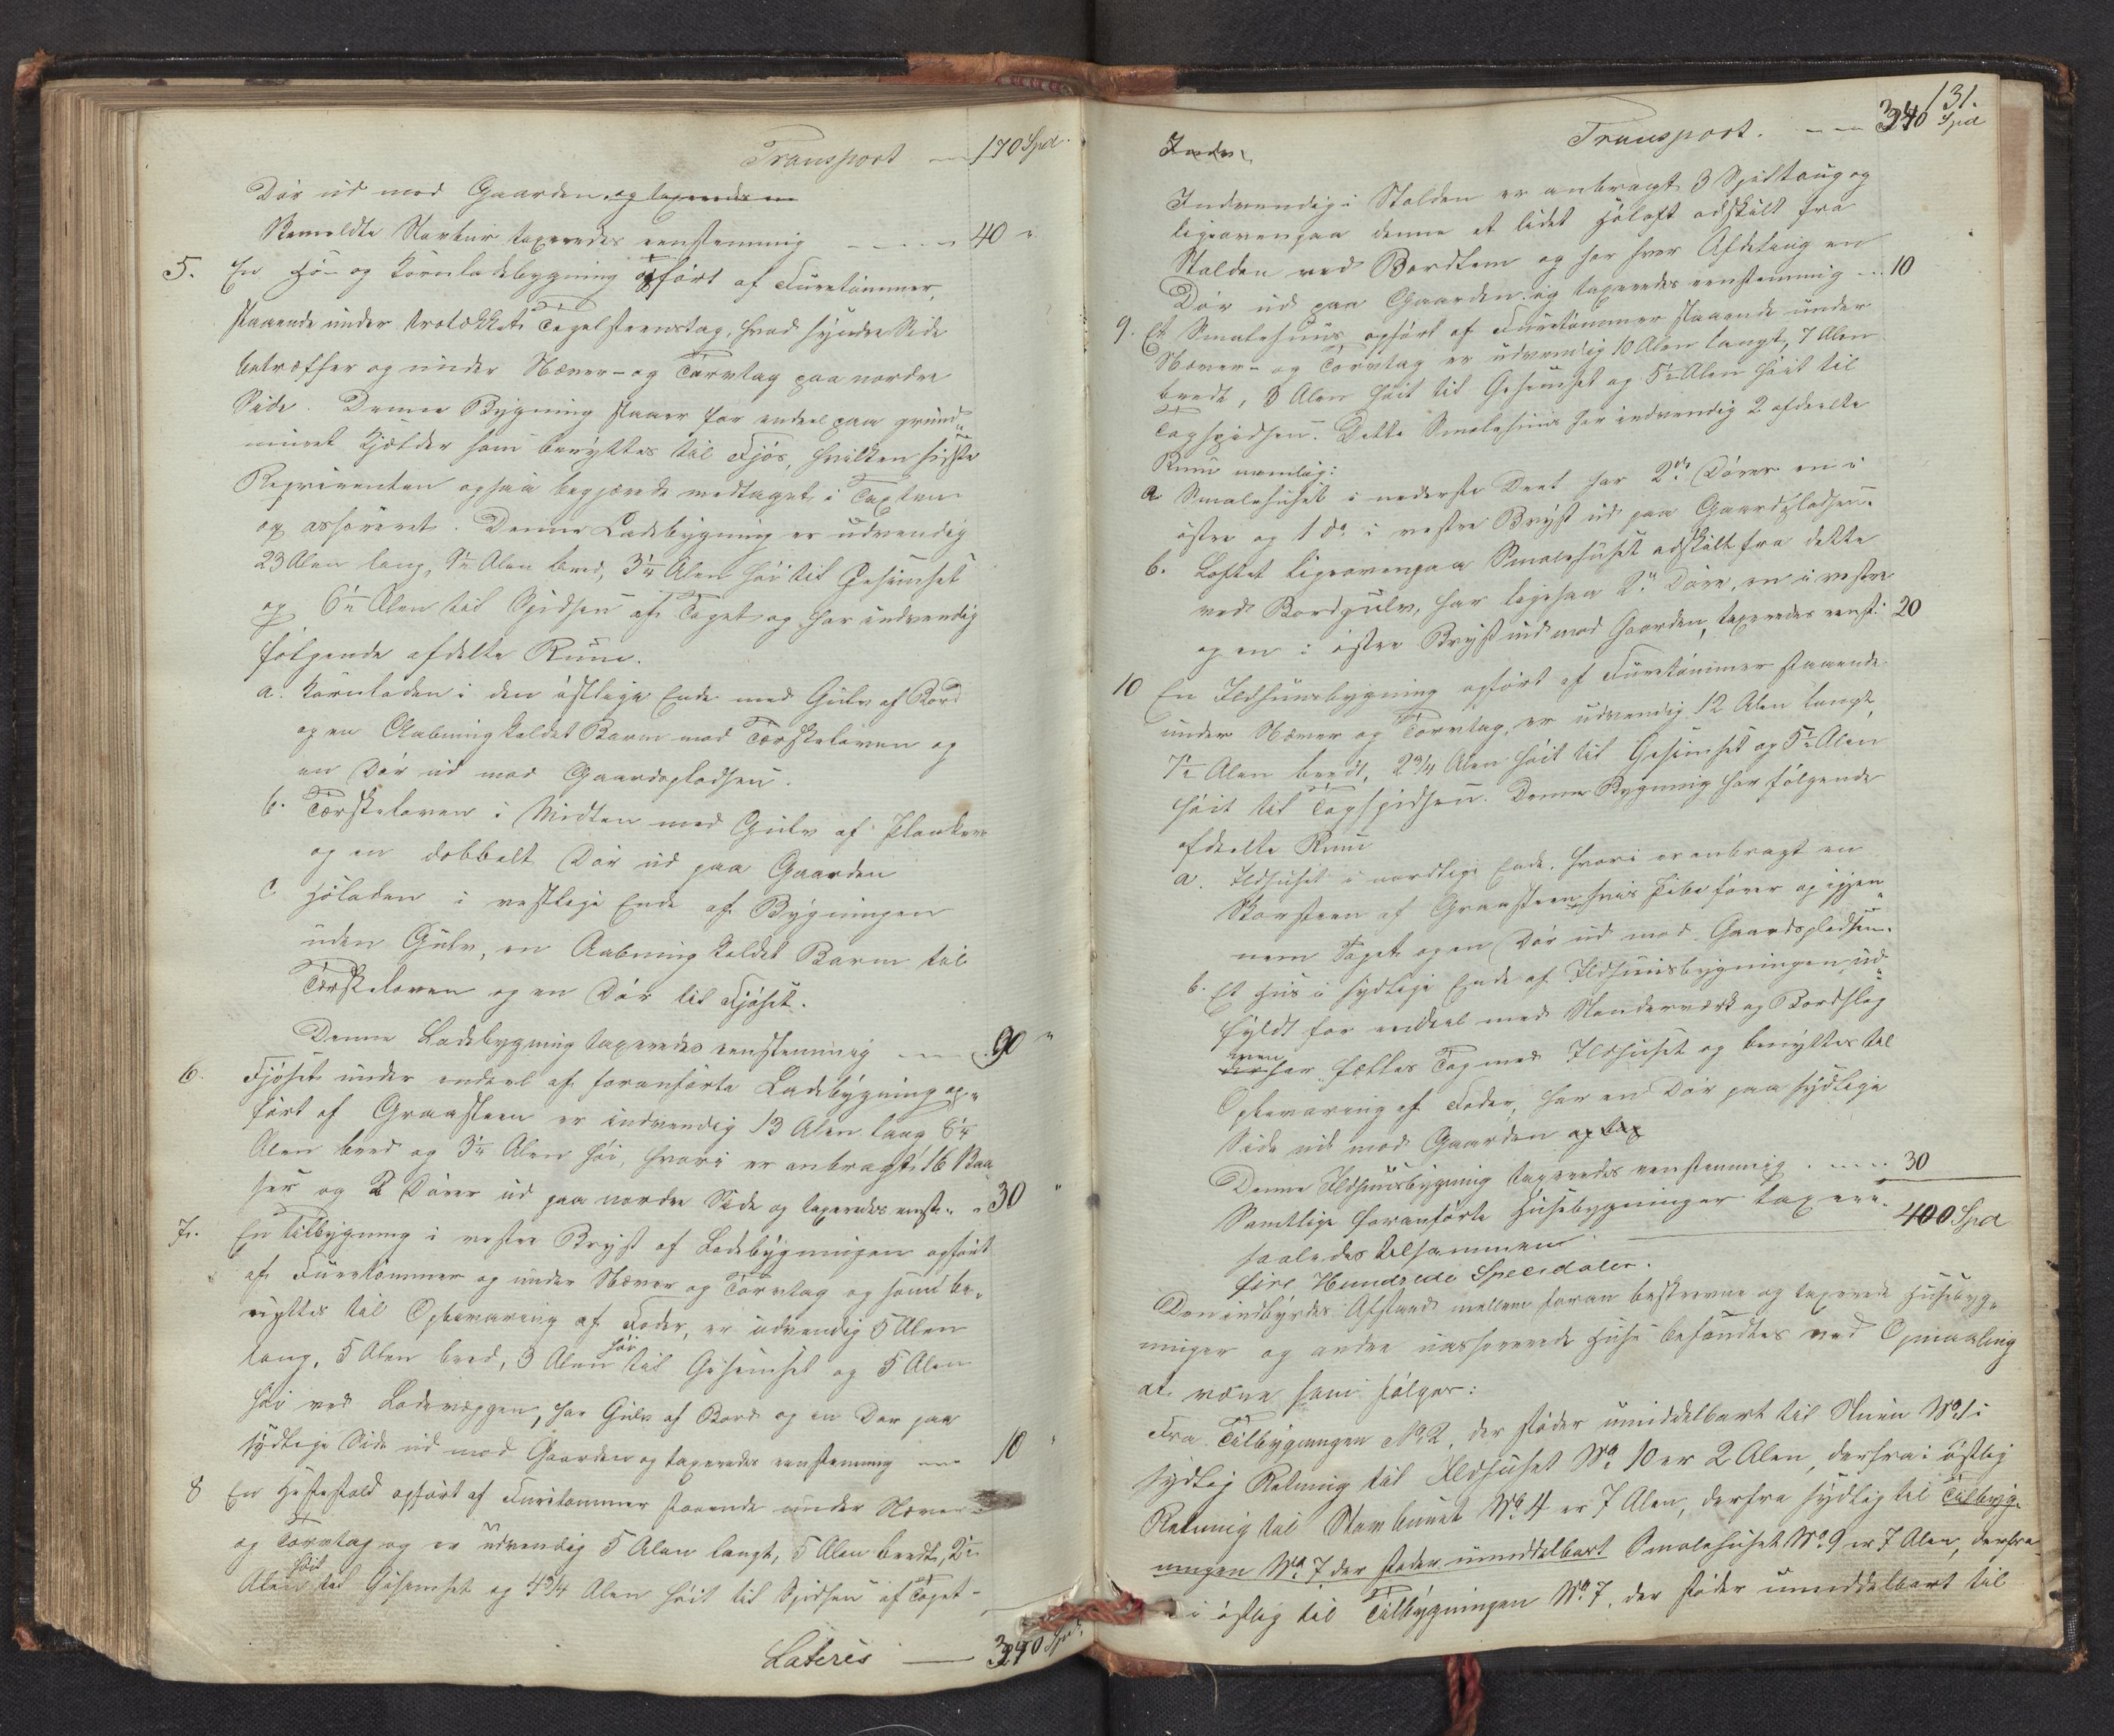 Transport — 170 Spd.
Dör ud mod Gaarden og taxeredes en
Bemeldte Stavbur taxeredes eenstemmig — 40 "
5. En Hö- og Kornladebygning opfört af Furetömmer,
staaende under Tegelsteenstag, hvad syndre Side
betræffer og under Næver- og Torvtag paa nordre
Side. Denne Bygning staaer for endeel paa grund-
muret Kjælder som benyttes til Fjös, hvilken sidste
Reqvirenten ogsaa begjærede medtaget i Taxten
og assureret. Denne Ladebygning er udvendig
23 Alen lang, 9½ Alen bred, 3¼ Alen höi til Gesimset
og 6½ Alen til Spidsen af Taget og har indvendig
fölgende afdelte Rum.
a. Kornladen i den östlige Ende med Gulv af Bord
og en Aabning kaldet Barm mod Tærskeloven og
en Dör ud mod Gaardspladsen.
b. Tærskeloven i Midten med Gulv af Planker
og en dobbelt Dör ud paa Gaarden
c. Höladen i vestlige Ende af Bygningen
uden Gulv, en Aabning kaldet Barm til
Tærskeloven og en Dör til Fjöset.
Denne Ladebygning taxeredes eenstemmig — 90 "
6. Fjöset under endeel af foranförte Ladebygning op-
fört af Graasteen er indvendig 13 Alen lang 8¼
Alen bred og 3¼ Alen höi, hvori er anbragt 16 Baa-
ser og 2 Dörer ud paa nordre Side og taxeredes eenst. 30 "
7. En Tilbygning i vestre Bryst af Ladebygningen opfört
af Furetömmer og under Næver og Torvtag og som be-
nyttes til Opbevaring af Foder, er udvendig 5 Alen
lang, 5 Alen bred, 3 Alen höi til Gesimset og 5 Alen
höi ved Ladevæggen, har Gulv af Bord og en Dör paa
sydlige Side ud mod Gaarden og taxeredes eenstemmig — 10 "
8 En Hestestald opfört af Furetömmer staaende under Næver-
og Torvtag og er udvendig 5 Alen langt, 5 Alen bredt, 2½
Alen höit til Gesimset og 4¾ Alen höit til Spidsen af Taget -
Lateris — 340 Spd.
131.
Transport. — 340 Spd
Indv.
Indvendig i Stalden er anbragt 3 Spiltoug og
ligeovenpaa denne et lidet Höloft adskilt fra
Stalden ved Bordlem og har hver Afdeling en
Dör ud paa Gaarden og taxeredes eenstemmig — 10
9. Et Smalehuus opfört af Furetömmer staaende under
Næver- og Torvtag er udvendig 10 Alen langt, 7 Alen
bredt, 3 Alen höit til Gesimset og 5½ Alen höit til
Tagspidsen. Dette Smalehuus har indvendig 2 afdeelte
Rum nemlig:
a Smalehuset i nederste Deel har 2de Dörer en i
östre og 1 do i vestre Bryst ud paa Gaardspladsen.
b. Loftet ligeovenpaa Smalehuset adskilt fra dette
ved Bordgulv, har ligesaa 2de Döre, en i vestre
og en i östre Bryst ud mod Gaarden, taxeredes eenst: 20
10 En Ildhuusbygning opfört af Furetömmer staaende
under Næver og Torvtag, er udvendig 12 Alen langt,
7½ Alen bredt, 2¾ Alen höit til Gesimset og 5½ Alen
höit til Tagspidsen. Denne Bygning har fölgende
afdeelte Rum
a. Ildhuset i nordlige Ende, hvori er anbragt en
Skorsteen af Graasteen, hvis Pibe förer op igjen-
nem Taget og en Dör ud mod Gaardspladsen.
b. Et Hus i sydlige Ende af Ildhuusbygningen, ud-
fyldt for endeel med Stenderværk og Bordslag
men har fælles Tag med Ildhuset og benyttes til
Opbevaring af Foder, har en Dör paa sydlige
Side ud mod Gaarden og tax
Denne Ildhuusbygning taxeredes eenstemmig — 30
Samtlige foranförte Husebygninger taxere-
saaledes tilsammen — 400 Spd
fire Hundrede Speeidaler.
Den indbyrdes Afstand mellem foran beskrevne og taxerede Husebyg-
ninger og andre uassurerede Huse befandtes ved Opmaaling
at være som fölger:
Fra Tilbygningen No 2, der stöder umiddelbart til Stuen No 1 i
sydlig Retning til Ildhuset No 10 er 2 Alen, derfra i östlig
Retning til Stavburet No 4 er 7 Alen, derfra sydlig til Tilbyg-
ningen No 7 der stöder umiddelbart Smalehuset No 9 er 7 Alen, derfra
i östlig til Tilbygningen No 7, der stöder umiddelbart til